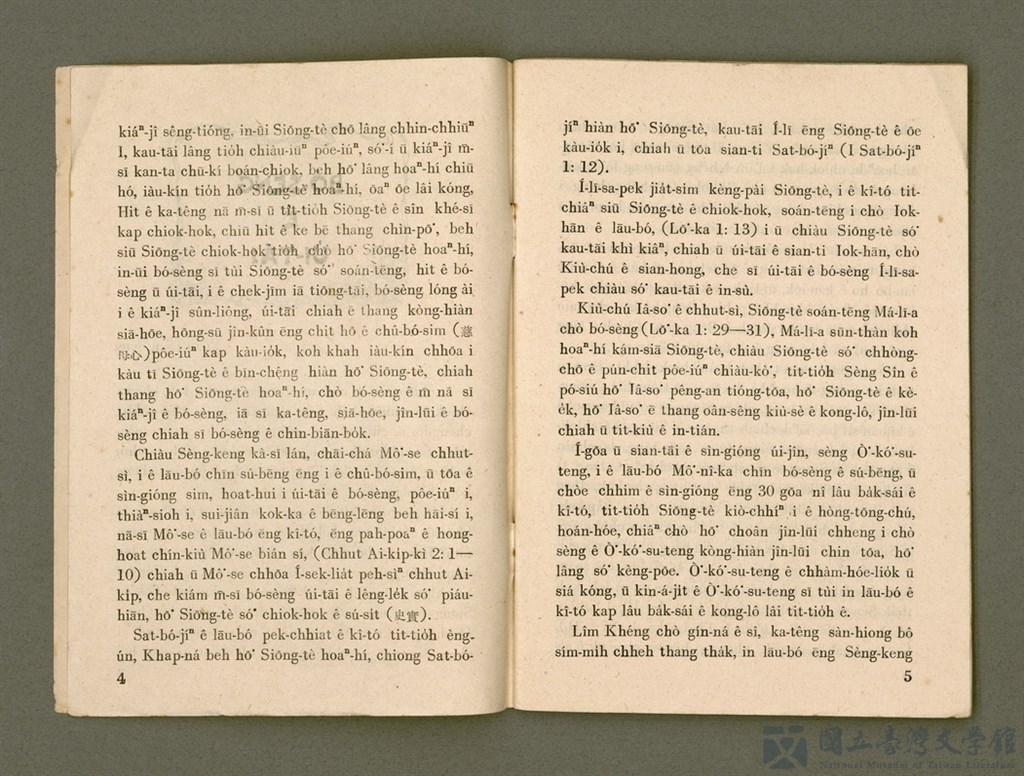 kiáⁿ-jî sêng-tióng, in-ūi Siōng-tè chō lâng chhin-chhiūⁿ
I, kau-tāi lâng tio̍h chiàu-iūⁿ pôe-iúⁿ, só͘-í ū kiáⁿ-jî m̄-
sī kan-ta chū-kí boán-chiok, beh hō͘ lâng hoaⁿ-hí chiū
hó, iàu-kín tio̍h hō͘ Siōng-tè hoaⁿ-hí, ōaⁿ ōe lâi kóng,
Hit ê ka-têng nā m̄-sī ū tit-tio̍h Siōng-tè ê sin khé-sī
kap chiok-hok, chiū hit ê ke bē thang chìn-pō͘, beh
siū Siōng-tè chiok-hok tio̍h chò hō͘ Siōng-tè hoaⁿ-hí,
in-ūi bó-sèng sī tùi Siōng-tè só͘ soán-tēng, hit ê bó-
sèng ū úi-tāi, i ê chek-jīm iā tiōng-tāi, bó-sèng lóng ài
i ê kiáⁿ-jî sûn-liông, úi-tāi chiah ē thang kòng-hiàn
siā-hōe, hōng-sū jîn-kûn ēng chit hō ê chû-bó-sim (慈
母心)pôe-iúⁿ kap kàu-io̍k, koh khah iàu-kín chhōa i
kàu tī Siōng-tè ê bīn-chêng hiàn hō͘ Siōng-tè, chiah
thang hō͘ Siōng-tè hoaⁿ-hí, chò bó-sèng ê m̄ nā sī
kiáⁿ-jî ê bó-sèng, iā sī ka-têng, siā-hōe, jîn-lūi ê bó-
sèng chiah sī bó-sèng ê chin-biān-bo̍k.
Chiàu Sèng-keng kà-sī lán, chāi-chá Mô͘-se chhut-
sì, i ê lāu-bó chīn sú-bēng ēng i ê chû-bó-sim, ū tōa ê
sìn-gióng sim, hoat-hui i úi-tāi ê bó-sèng, pôe-iúⁿ i,
thiàⁿ-sioh i, sui-jiân kok-ka ê bēng-lēng beh hāi-sí i,
nā-sī Mô͘-se ê lāu-bó ēng kî-tó, ēng pah-poaⁿ ê hong-
hoat chín-kiù Mô͘-se bián sí, (Chhut Ai-ki̍p-kì 2: 1—
10) chiah ū Mô͘-se chhōa Í-sek-lia̍t peh-sìⁿ chhut Ai-
ki̍p, che kiám m̄-sī bó-sèng úi-tāi ê lêng-le̍k só͘ piáu-
hiān, hō͘ Siōng-tè só͘ chiok-hok ê sú-si̍t (史實).
Sat-bó-jíⁿ ê lāu-bó pek-chhiat ê kî-tó tit-tio̍h èng-
ún, Khap-ná beh hō͘ Siōng-tè hoaⁿ-hí, chiong Sat-bó-
4
jíⁿ hiàn hō͘ Siōng-tè, kau-tāi Í-lī ēng Siōng-tè ê ōe
kàu-io̍k i, chiah ū tōa sian-ti Sat-bó-jíⁿ (I Sat-bó-jíⁿ
1: 12).
Í-lī-sa-pek jia̍t-sim kèng-pài Siōng-tè, i ê kî-tó tit-
chiáⁿ siū Siōng-tè ê chiok-hok, soán-tēng i chò Iok-
hān ê lāu-bó, (Lō͘-ka 1: 13) i ū chiàu Siōng-tè só͘
kau-tāi khì kiâⁿ, chiah ū úi-tāi ê sian-ti Iok-hān, chò
Kiù-chú ê sian-hong, che sī úi-tāi ê bó-sèng Í-lī-sa-
pek chiàu só͘ kau-tāi ê in-sù.
Kiù-chú Iâ-so͘ ê chhut-sì, Siōng-tè soán-tēng Má-lī-a
chò bó-sèng (Lō͘-ka 1: 29—31), Má-lī-a sūn-thàn koh
hoaⁿ-hí kám-siā Siōng-tè, chiàu Siōng-tè só͘ chhòng-
chō ê pún-chit pôe-iúⁿ chiàu-kò͘, tit-tio̍h Sèng Sîn ê
pó-siú hō͘ Iâ-so͘ pêng-an tióng-tōa, hō͘ Siōng-tè ê kè-
e̍k, hō͘ Iâ-so͘ ē thang oân-sêng kiù-sè ê kong-lô, jîn-lūi
chiah ū tit-kiù ê in-tián.
Í-gōa ū sian-tāi ê sìn-gióng úi-jîn, sèng Ò͘-kó͘-su-
teng, i ê lāu-bó Mô͘-nî-ka chīn bó-sèng ê sú-bēng, ū
chòe chhim ê sìn-gióng ēng 30 gōa nî lâu ba̍k-sái ê
kî-tó, tit-tio̍h Siōng-tè kiò-chhíⁿ i ê hòng-tōng-chú,
hoán-hóe, chiâⁿ chò hō͘ choân jîn-lūi chheng i chò
sèng ê Ò͘-kó͘-su-teng kòng-hiàn jîn-lūi chin tōa, hō͘
lâng só͘ kèng-pōe. Ò͘-kó͘-su-teng ê chhàm-hóe-lio̍k ū
siá kóng, ū kin-á-ji̍t ê Ò͘-kó͘-su-teng sī tùi in lāu-bó ê
kî-tó kap lâu ba̍k-sái ê kong-lô lâi tit-tio̍h ê.
Lîm Khéng chò gín-ná ê sî, ka-têng sàn-hiong bô
sím-mih chheh thang tha̍k, in lāu-bó ēng Sèng-keng
5
國立臺灣文學館
National Museum of Taiwan Literature